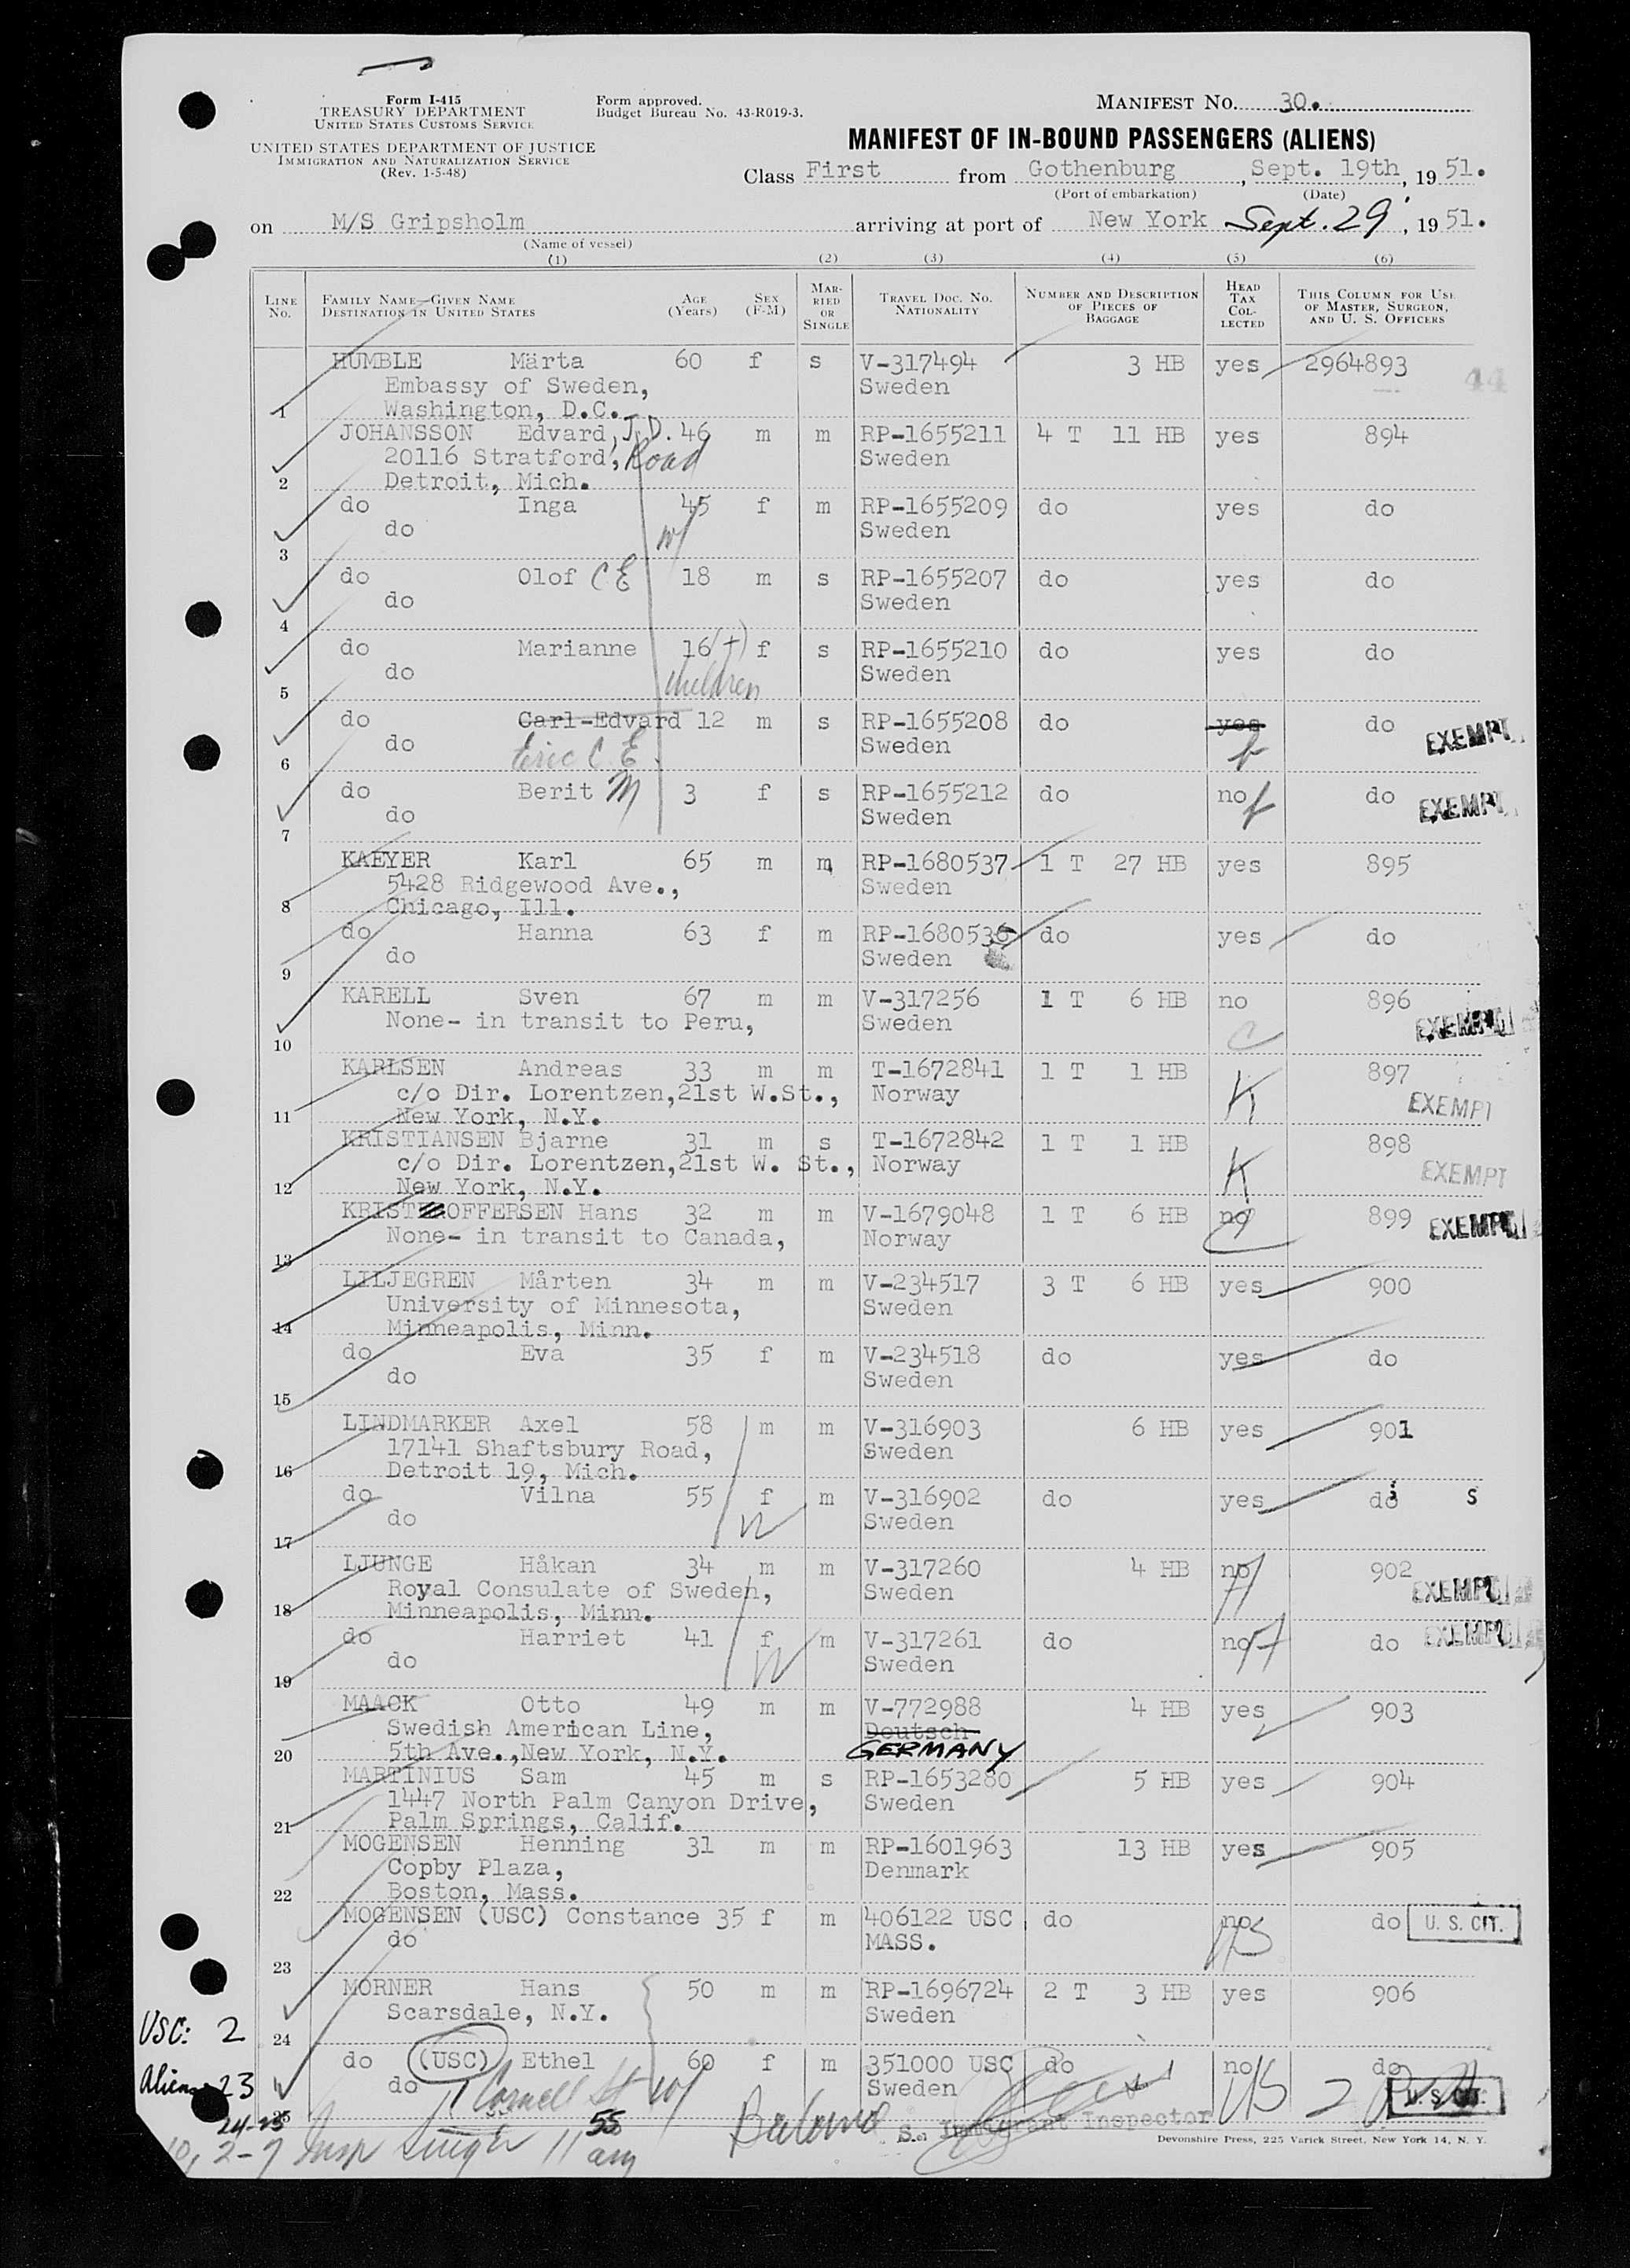 Form I-415
TREASURY DEPARTMENT
UNITED STATES CUSTOMS SERVICE
UNITED STATES DEPARTMENT OF JUSTICE
IMMIGRATION AND NATURALIZATION SERVICE
(Rev. 1-5-48)
Form approved.
Budget Bureau No. 43-R019-3.
MANIFEST NO. 30.
MANIFEST OF IN-BOUND PASSENGERS (ALIENS)
Class First from Gothenburg, Sept. 19th, 1951.
(Port of embarkation) (Date)
on M/S Gripsholm arriving at port of New York Sept. 29, 1951.
(Name of vessel)
(1) (2) (3) (4) (5) (6)
LINE No. FAMILY NAME—GIVEN NAME DESTINATION IN UNITED STATES AGE (Years) SEX (F-M) MARRIED OR SINGLE TRAVEL DOC. NO. NATIONALITY NUMBER AND DESCRIPTION OF PIECES OF BAGGAGE HEAD TAX COLLECTED THIS COLUMN FOR USE OF MASTER, SURGEON, AND U. S. OFFICERS
HUMBLE Märta 60 f s V-317494 3 HB yes 2964893 44
Embassy of Sweden, Sweden
1 Washington, D.C.
JOHANSSON Edvard, J.D. 46 m m RP-1655211 4 T 11 HB yes 894
20116 Stratford, Road Sweden
2 Detroit, Mich.
do Inga 45 f m RP-1655209 do yes do
do w/ Sweden
3
do Olof C E 18 m s RP-1655207 do yes do
do Sweden
4
do Marianne 16 (+) f s RP-1655210 do yes do
do children Sweden
5
do Carl-Edvard 12 m s RP-1655208 do yes do EXEMPT
do Eric C E. Sweden
6
do Berit M 3 f s RP-1655212 do no do EXEMPT
do Sweden
7
KAEYER Karl 65 m m RP-1680537 1 T 27 HB yes 895
5428 Ridgewood Ave., Sweden
8 Chicago, Ill.
do Hanna 63 f m RP-1680536 do yes do
do Sweden
9
KARELL Sven 67 m m V-317256 1 T 6 HB no 896
None- in transit to Peru, Sweden C EXEMPT
10
KARLSEN Andreas 33 m m T-1672841 1 T 1 HB 897
c/o Dir. Lorentzen,21st W.St., Norway K EXEMPT
11 New York, N.Y.
KRISTIANSEN Bjarne 31 m s T-1672842 1 T 1 HB 898
c/o Dir. Lorentzen,21st W. St., Norway K EXEMPT
12 New York, N.Y.
KRISTOFFERSEN Hans 32 m m V-1679048 1 T 6 HB no 899 EXEMPT
None- in transit to Canada, Norway C
13
LILJEGREN Mårten 34 m m V-234517 3 T 6 HB yes 900
University of Minnesota, Sweden
14 Minneapolis, Minn.
do Eva 35 f m V-234518 do yes do
do Sweden
15
LINDMARKER Axel 58 m m V-316903 6 HB yes 901
17141 Shaftsbury Road, Sweden
16 Detroit 19, Mich.
do Vilna 55 f m V-316902 do yes do s
do W Sweden
17
LJUNGE Håkan 34 m m V-317260 4 HB no 902
Royal Consulate of Sweden, Sweden A EXEMPT
18 Minneapolis, Minn.
do Harriet 41 f m V-317261 do no A do EXEMPT
do W Sweden
19
MAACK Otto 49 m m V-772988 4 HB yes 903
Swedish American Line, Deutsch
20 5th Ave.,New York, N.Y. GERMANY
MARTINIUS Sam 45 m s RP-1653280 5 HB yes 904
1447 North Palm Canyon Drive, Sweden
21 Palm Springs, Calif.
MOGENSEN Henning 31 m m RP-1601963 13 HB yes 905
Copby Plaza, Denmark
22 Boston, Mass.
MOGENSEN (USC) Constance 35 f m 406122 USC do no do U. S. CIT.
do MASS. US
23
MORNER Hans 50 m m RP-1696724 2 T 3 HB yes 906
Scarsdale, N.Y. Sweden
24
do (USC) Ethel 60 f m 351000 USC do no do
do 11 Cornell St w/ Sweden US U. S. CIT.
25
USC: 2
Aliens 23
24-25
10, 2-7 Insp 11 55 am
Immigrant Inspector
Devonshire Press, 225 Varick Street, New York 14, N. Y.